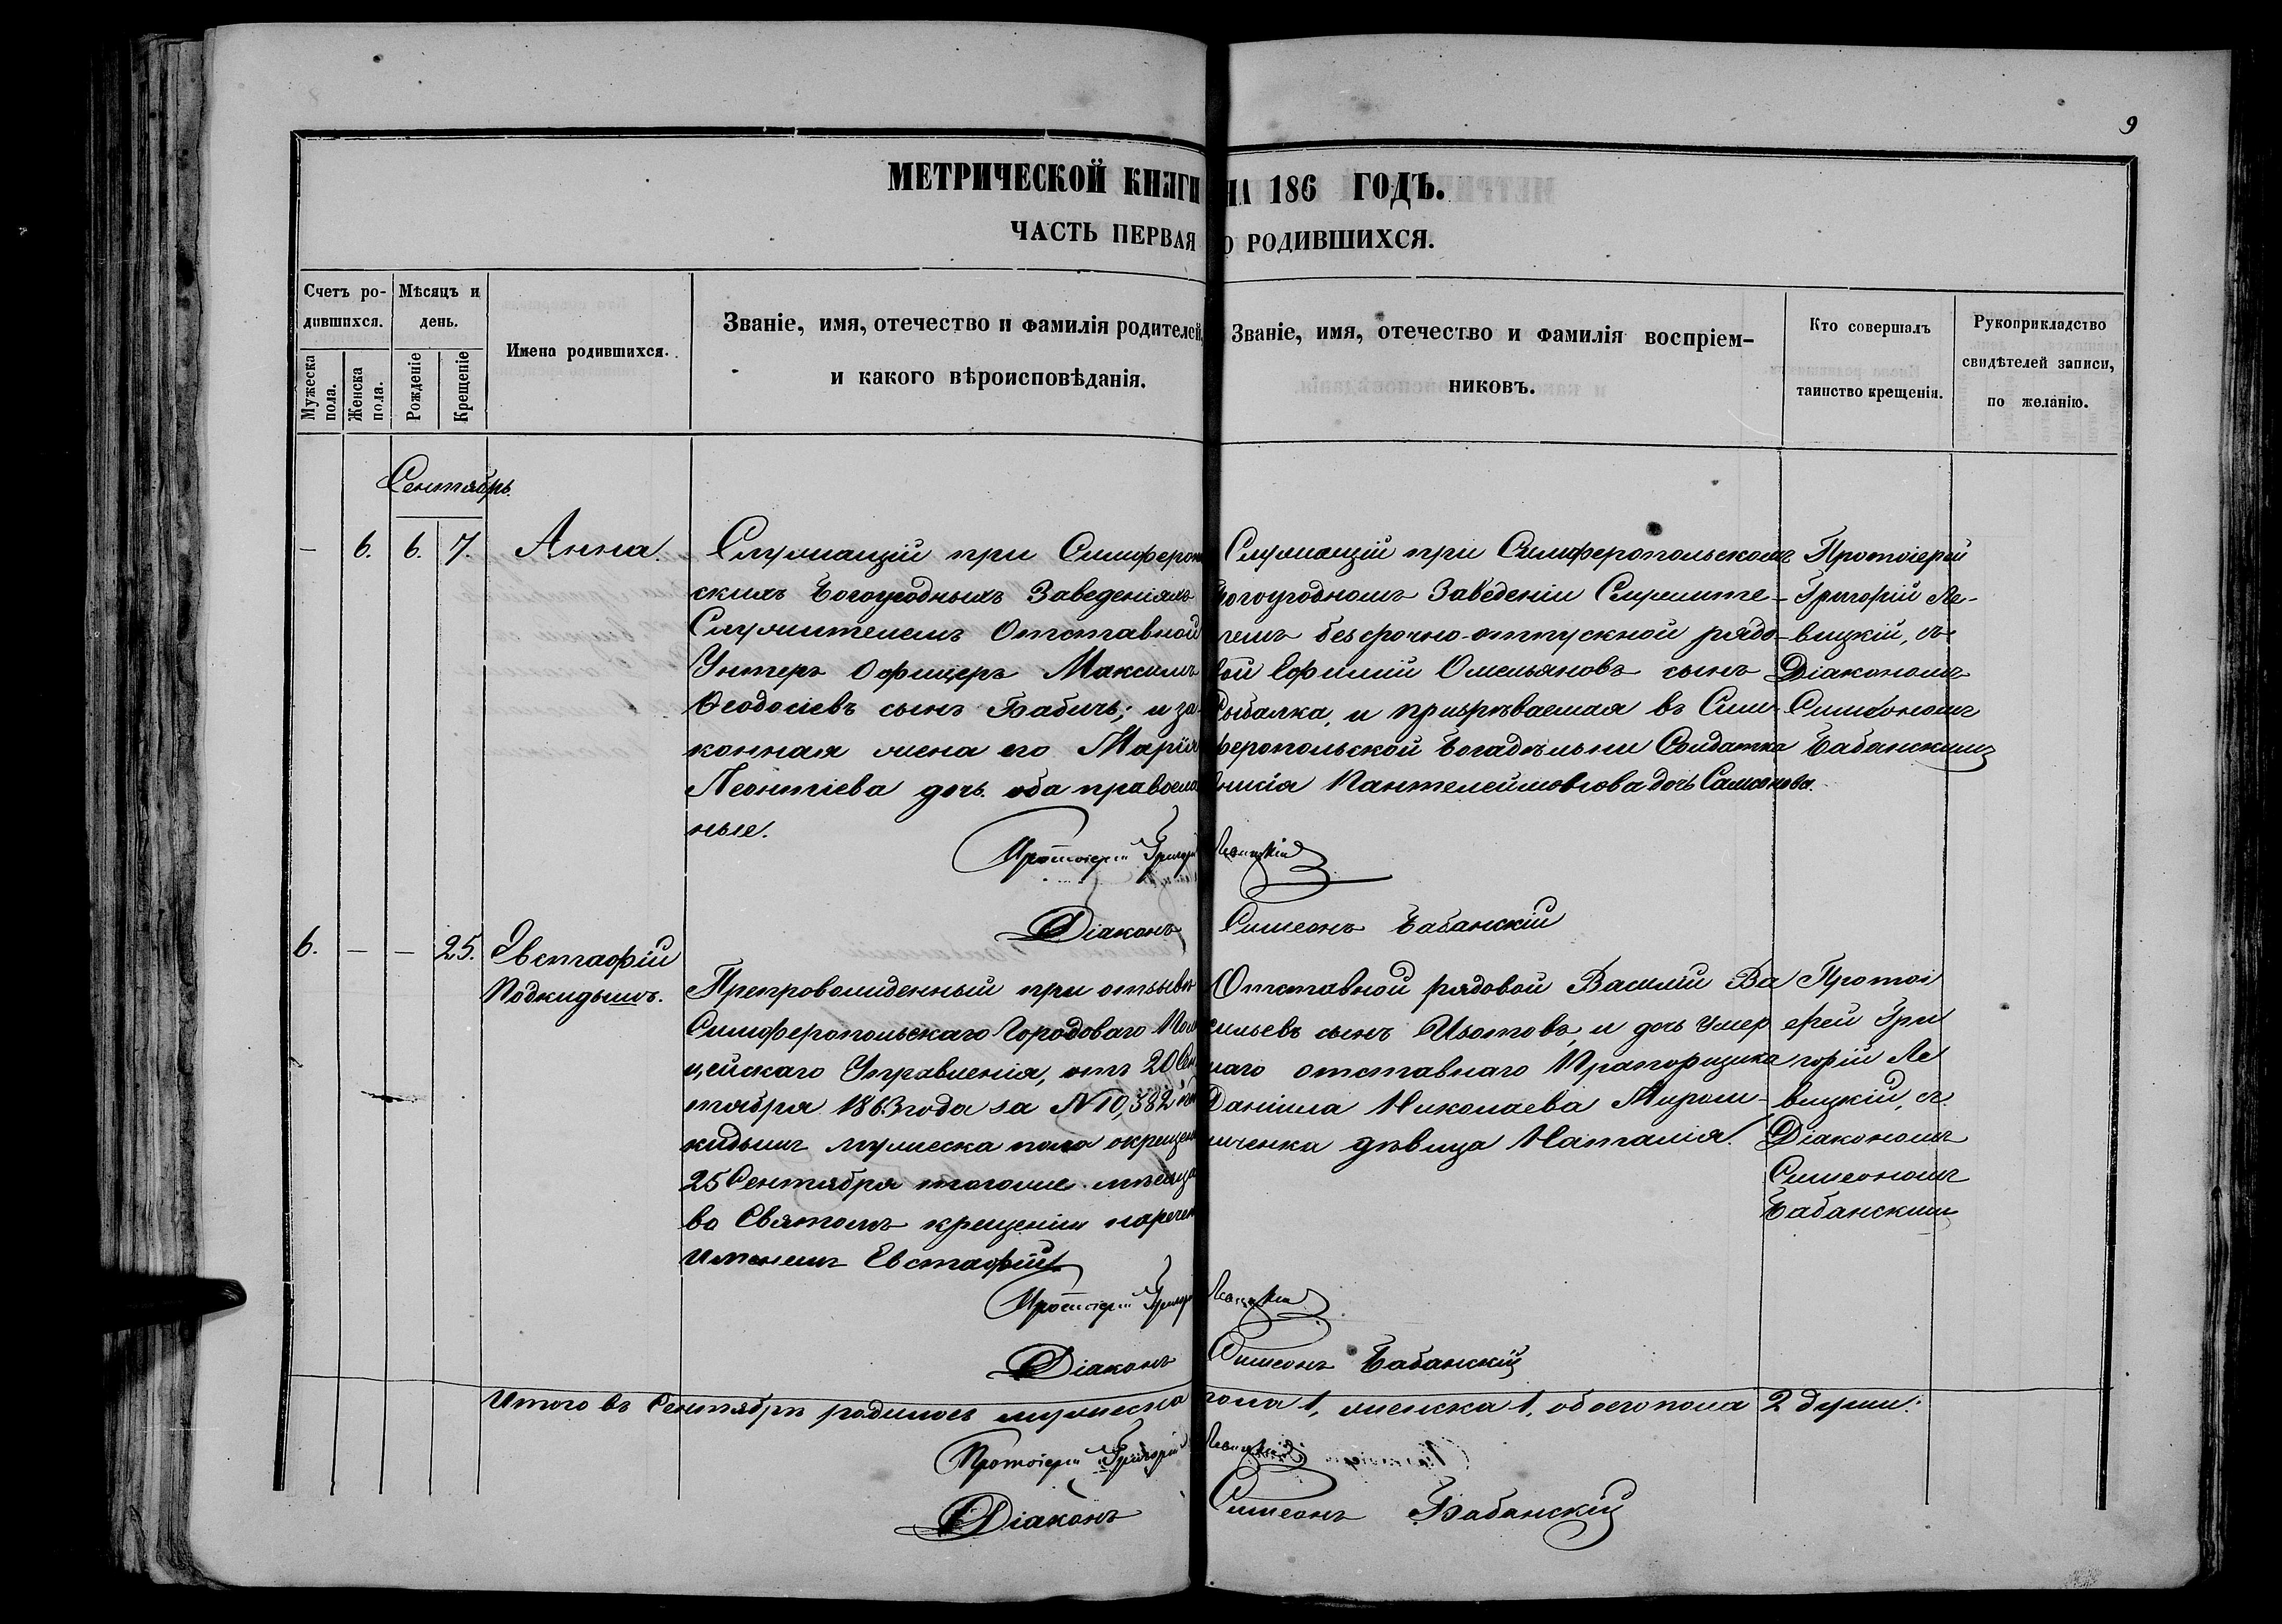 9
МЕТРИЧЕСКОЙ КНИГИ НА 186 ГОДЪ.
ЧАСТЬ ПЕРВАЯ О РОДИВШИХСЯ.
Счетъ ро-
дившихся.
Мужеска пола.
Женска пола.
Мѣсяцъ и
день.
Рожденіе
Крещеніе
Имена родившихся.
Званіе, имя, отечество и фамилія родителей,
и какого вѣроисповѣданія.
Званіе, имя, отечество и фамилія воспріем-
никовъ.
Кто совершалъ
таинство крещенія.
Рукоприкладство
свидѣтелей записи,
по желанію.
Сентябрь.
— 6. 6. 7. Анна.
Служащій при Симферопо
скихъ Богоугодныхъ Заведеніяхъ
Служителемъ Отставной
Унтеръ Офицеръ Максимъ
Ѳеодосіевъ сынъ Бабичъ; и за-
конная жена его Марія
Леонтіева дочь оба правосла
ные.
Служащій при Симферопольскомъ
Богоугодномъ Заведеніи Служите-
лемъ безсрочно-отпускной рядо-
вой Ефимій Омельяновъ сынъ
Рыбалка, и призрѣваемая въ Сим-
феропольской Богадѣльни Солдатка
Пантелеймонова дочь Самсонова.
Протоіерей
Григорій Ле-
вицкій, съ
Діакономъ
Симеономъ
Бабанскимъ
Протоіерей Григорій Левицкій
Діаконъ Симеонъ Бабанскій
6. — — 25. Евстафій
Подкидышъ.
Препровожденный при отзывѣ
Симферопольскаго Городоваго Поли
цейскаго Управленія, отъ 20 Сен
тября 1863 года за N 10,382 й под
кидышъ мужеска пола окрещенъ
25 Сентября тогоже мѣсяца
во Святомъ крещеніи нареченъ
Именемъ Евстафій.
Отставной рядовой Василій Ва
сильевъ сынъ Изотовъ, и дочь умер
шаго отставнаго Прапорщика
Даніила Николаева Мирош-
ниченка дѣвица Наталія.
Протоі
ерей Гри
горій Ле
вицкій, съ
Діакономъ
Симеономъ
Бабанскимъ
Протоіерей Григорій Левицкій
Діаконъ Симеонъ Бабанскій
Итого въ Сентябрѣ родилось мужеска пола 1, женска 1, обоего пола 2 души.
Протоіерей Григорій Левицкій
Діаконъ Симеонъ Бабанскій